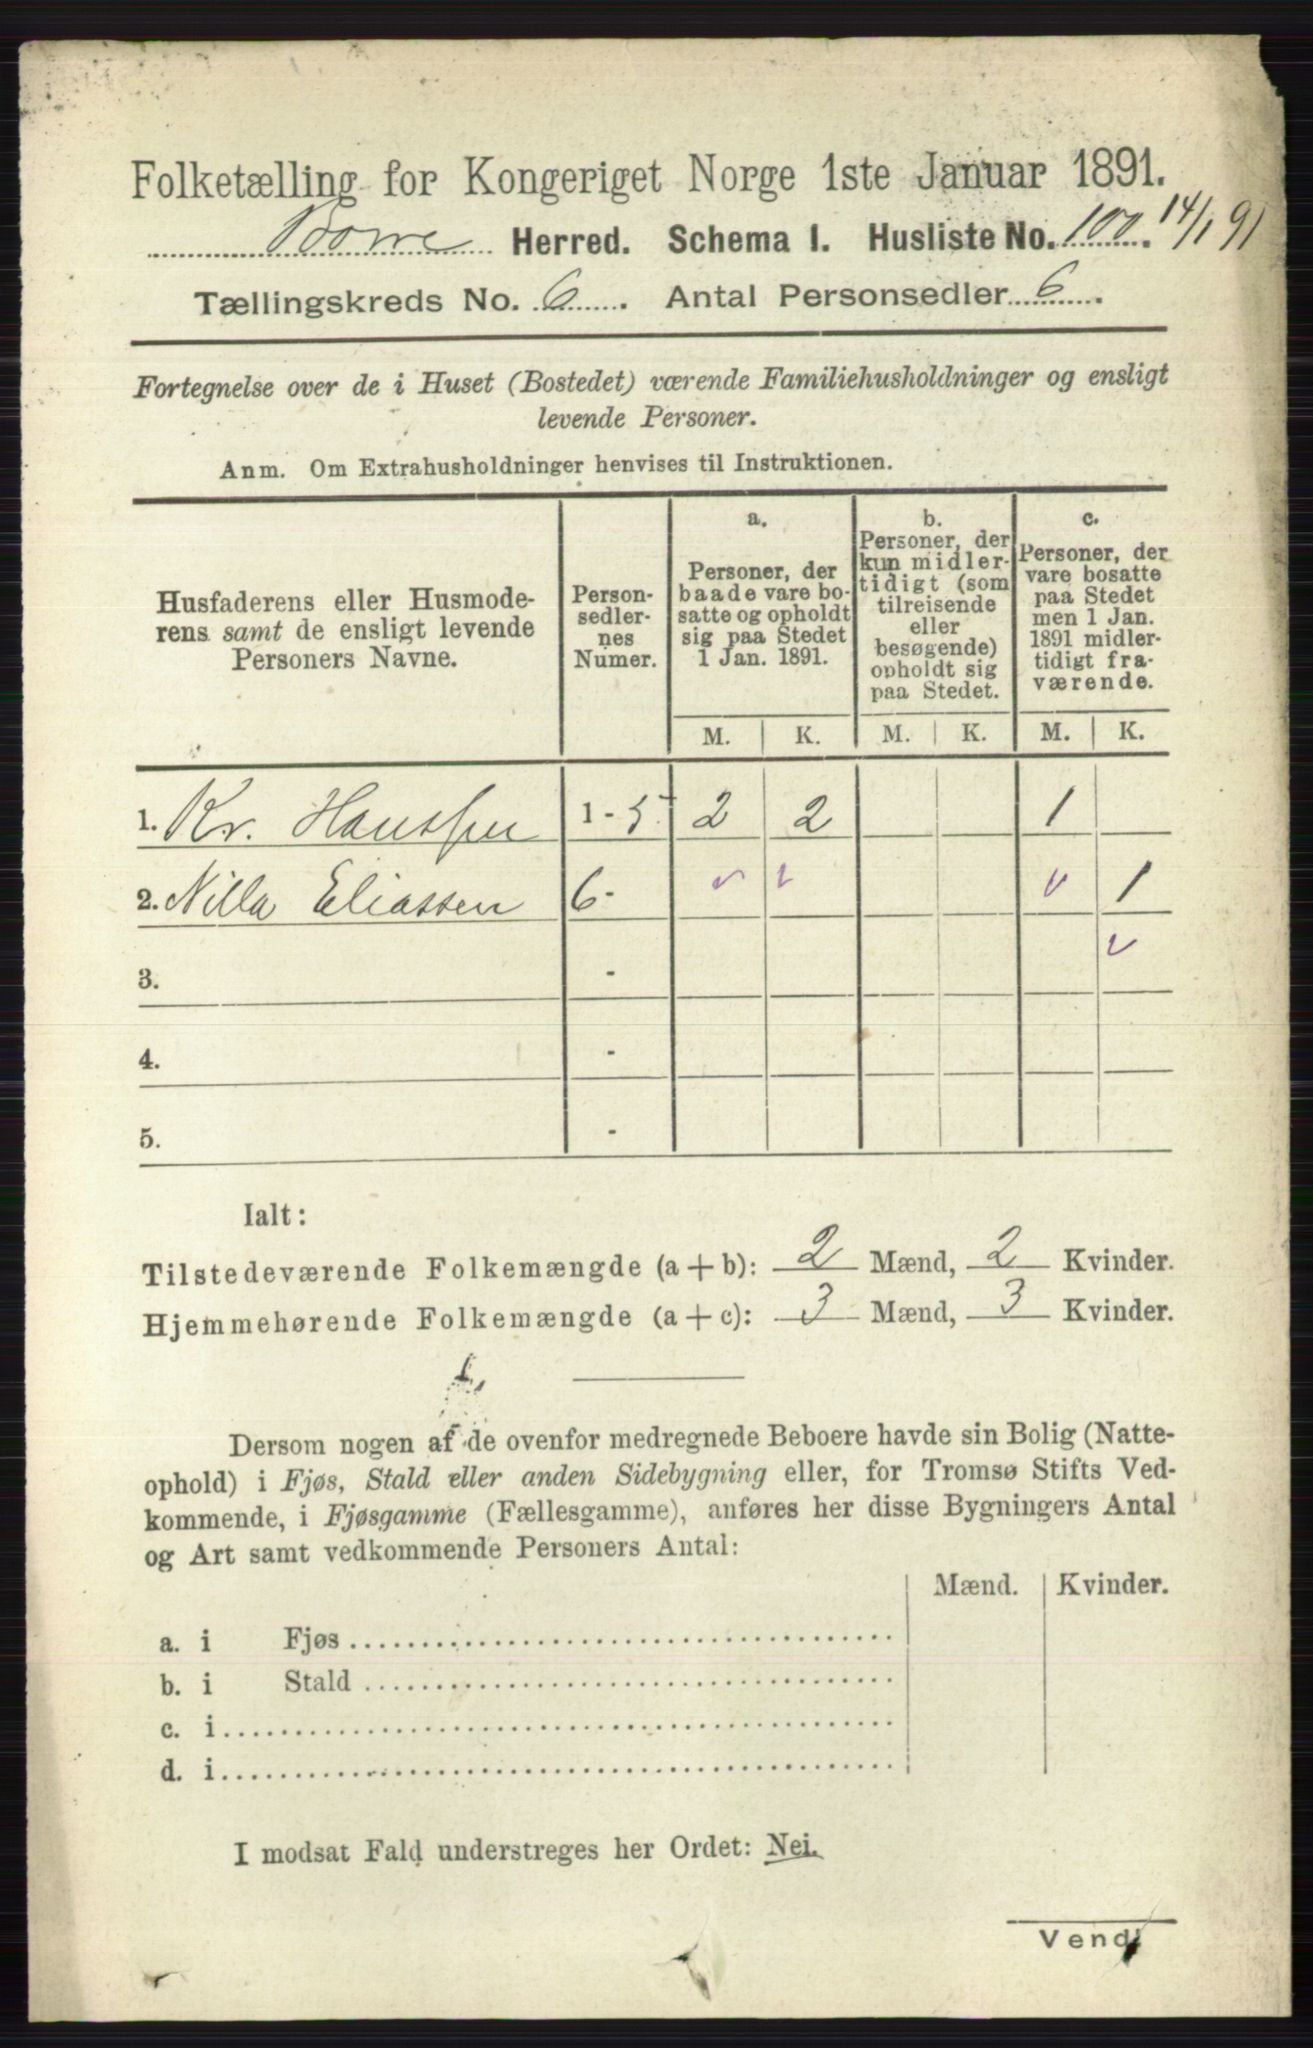 Folketælling for Kongeriget Norge 1ste Januar 1891.
Borre Herred. Schema I. Husliste No. 100. 14/1 91
Tællingskreds No. 6. Antal Personsedler 6.
Fortegnelse over de i Huset (Bostedet) værende Familiehusholdninger og ensligt
levende Personer.
Anm. Om Extrahusholdninger henvises til Instruktionen.
Husfaderens eller Husmode-
rens samt de ensligt levende
Personers Navne.
Person-
sedler-
nes
Numer.
a.
Personer, der
baade vare bo-
satte og opholdt
sig paa Stedet
1 Jan. 1891.
b.
Personer, der
kun midler-
tidigt (som
tilreisende
eller
besøgende)
opholdt sig
paa Stedet.
c.
Personer, der
vare bosatte
paa Stedet
men 1 Jan.
1891 midler-
tidigt fra-
værende.
M. K. M. K. M. K.
1. Kr. Hanssen 1 - 5 2 2 1
2. Nilla Eliassen 6 - 1
3. -
4. -
5. -
Ialt:
Tilstedeværende Folkemængde (a + b): 2 Mænd, 2 Kvinder.
Hjemmehørende Folkemængde (a + c): 3 Mænd, 3 Kvinder.
Dersom nogen af de ovenfor medregnede Beboere havde sin Bolig (Natte-
ophold) i Fjøs, Stald eller anden Sidebygning eller, for Tromsø Stifts Ved-
kommende, i Fjøsgamme (Fællesgamme), anføres her disse Bygningers Antal
og Art samt vedkommende Personers Antal:
Mænd. Kvinder.
a. i Fjøs
b. i Stald
c. i
d. i
I modsat Fald understreges her Ordet: Nei.
Vend!